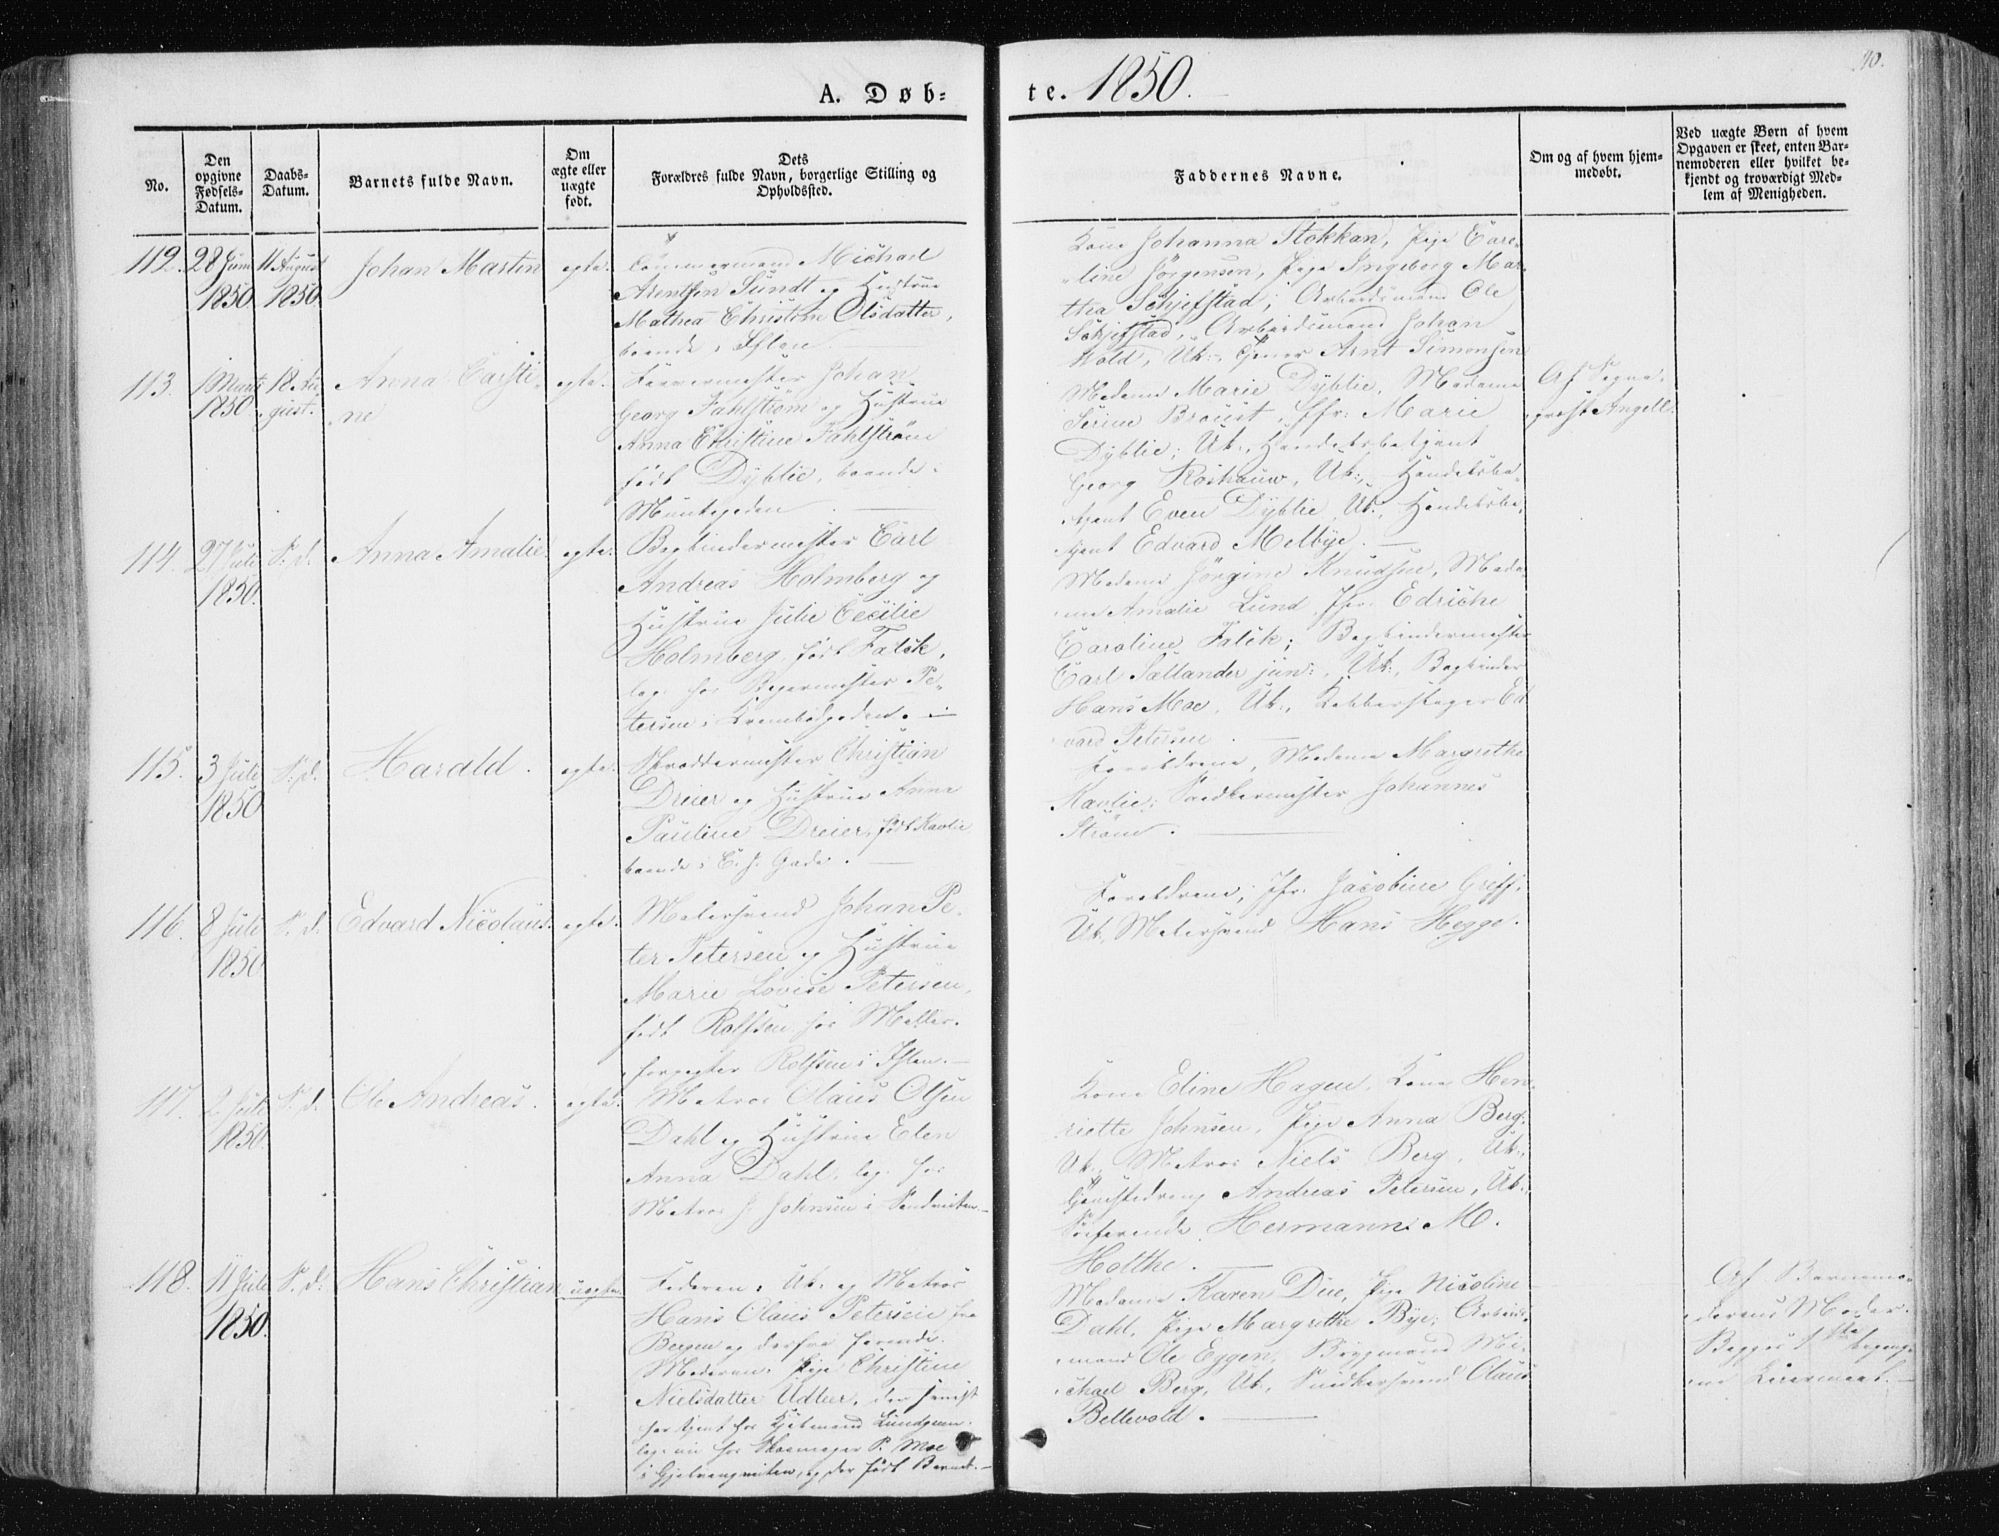 A. Døb=
te. 1850.
No.
Den
opgivne
Fødsels-
Datum.
Daabs-
Datum.
Barnets fulde Navn.
Om
ægte eller
uægte
født.
Dets
Forældres fulde Navn, borgerlige Stilling og
Opholdssted.
Faddernes Navne.
Om og af hvem hjem-
medøbt.
Ved uægte Børn af hvem
Opgaven er skeet, enten Bar-
nemoderen eller hvilket be-
kjendt og troværdigt Med-
lem af Menigheden.
112. 28 Juni
1850
11 August
1850
Johan Martin
egte.
Tømmermand Michael
Arentsen Sundt og Hustrue
Mathea Christine Olsdatter,
boende i Ihlen.
Kone Johanna Stokkan, Pige Care-
line Jörgensen, Pige Ingeborg Mar-
tha Schjefstad; Arbeidsmand Ole
Schjefstad, Arbeidsmand Johan
Wold, Uk: Arnt Simonsen
113. 1 Marts
1850
18 Au-
gust.
Anna Carsti-
ne
egte.
Farvermester Johan
Georg Fahlström og Hustrue
Anna Christine Fahlström
født Dyblie, boende i
Munkegaden.
Madame Marie Dyblie, Madame
Serine Broust, Jfr: Marie
Dyblie; Uk., Handelsbetjent
Georg Röshauw, Uk., Handelsbe-
tjent Even Dyblie, Uk., Handelsbe-
tjent Edvard Melbye.
Af Sogne-
præst Angell.
114. 27 Juli
1850.
S. d.
Anna Amalie.
egte.
Bogbindermester Carl
Andreas Holmberg og
Hustrue Julie Cecilie
Holmberg, født Falck,
log. hos Bagermester Pe-
tersen i Krambodgaden.
Madame Jörgine Knudsen, Mada-
me Amalie Lund, Jfr. Edriche
Caroline Falck; Bogbindermester
Carl Sallander jun:, Uk., Bogbinder
Hans Moe, Uk., Kobberslager Ed-
vard Petersen.
115. 3 Juli
1850
S. d.
Harald.
egte.
Skreddermester Christian
Dreier og Hustrue Anna
Pauline Dreier, født Kavlie
boende i C. J. Gade.
Forældrene, Madame Margrethe
Kavlie; Snedkermester Johannes
Ström.
116. 8 Juli
1850
S. d.
Edvard Nicolaus.
egte.
Malersvend Johan Pe-
ter Petersen og Hustrue
Marie Lovise Petersen,
født Rolfsen, hos Møller-
forpagter Rolfsen i Ihlen.
Forældrene, Jfr. Jacobine Griff;
Uk., Malersvend Hans Hegge.
117. 2 Juli
1850.
S. d.
Ole Andreas.
egte.
Matros Olaus Olsen
Dahl og Hustrue Elen
Anna Dahl, log. hos
Matros J. Johnsen i Sandvigten.
Kone Eline Hagen, Kone Hen-
riette Johnsen, Pige Anna Berg;
Uk., Matros Niels Berg, Uk.,
Andreas Petersen, Uk.,
Søefarende Hermann M.
Holthe.
118. 11 Juli
1850.
S. d.
Hans Christian
uegte.
Faderen: Uk. og Matros
Hans Olaus Petersen fra
Bergen og derfra farende.
Moderen: Pige Christine
Nielsdatter Udtler, der senest
har tjent hos Kjøbmand Lundgreen,
log. nu hos Skoemager P. Moe
i Gjelvangveiten, og der født Barnet.
Madame Karen Due, Pige Nicoline
Dahl, Pige Margrethe Bye; Arbeids-
mand Ole Eggen, Brygmand Mi-
chael Berg, Uk., Snedkersvend Olaus
Bellevold.
Af Barnemo-
derens Moder.